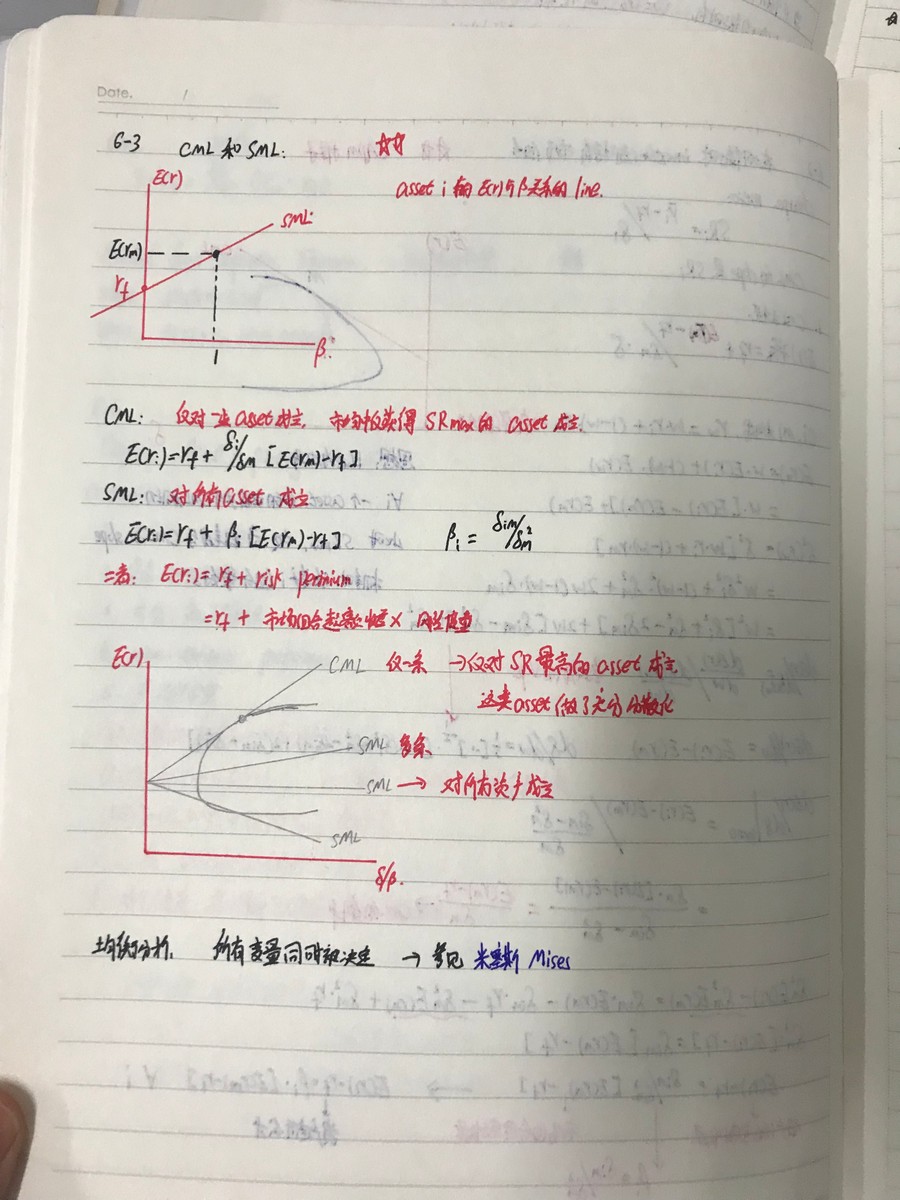 Date. /
6-3 CML 和 SML: ☆☆
asset i 的 E(r) 与 β 关系的 line.
E(r)
SML
E(rm)
rf
1
βi
CML: 仅对一些 asset 成立, 市场中仅获得 SRmax 的 asset 成立.
E(ri)=rf+ δi/δm [E(rm)-rf]
SML: 对所有 asset 成立
E(ri)=rf+ βi [E(rm)-rf] βi = δim/δm²
二者: E(ri)=rf + risk permium
=rf + 市场组合超额 ×
E(r)
CML 仅一条 → 仅对 SR 最高的 asset 成立
这类 asset 做了充分分散化
SML 多条
SML → 对所有资产成立
SML
δ/β.
均衡分析. 所有变量同时被决定 → 参见 米塞斯 Mises